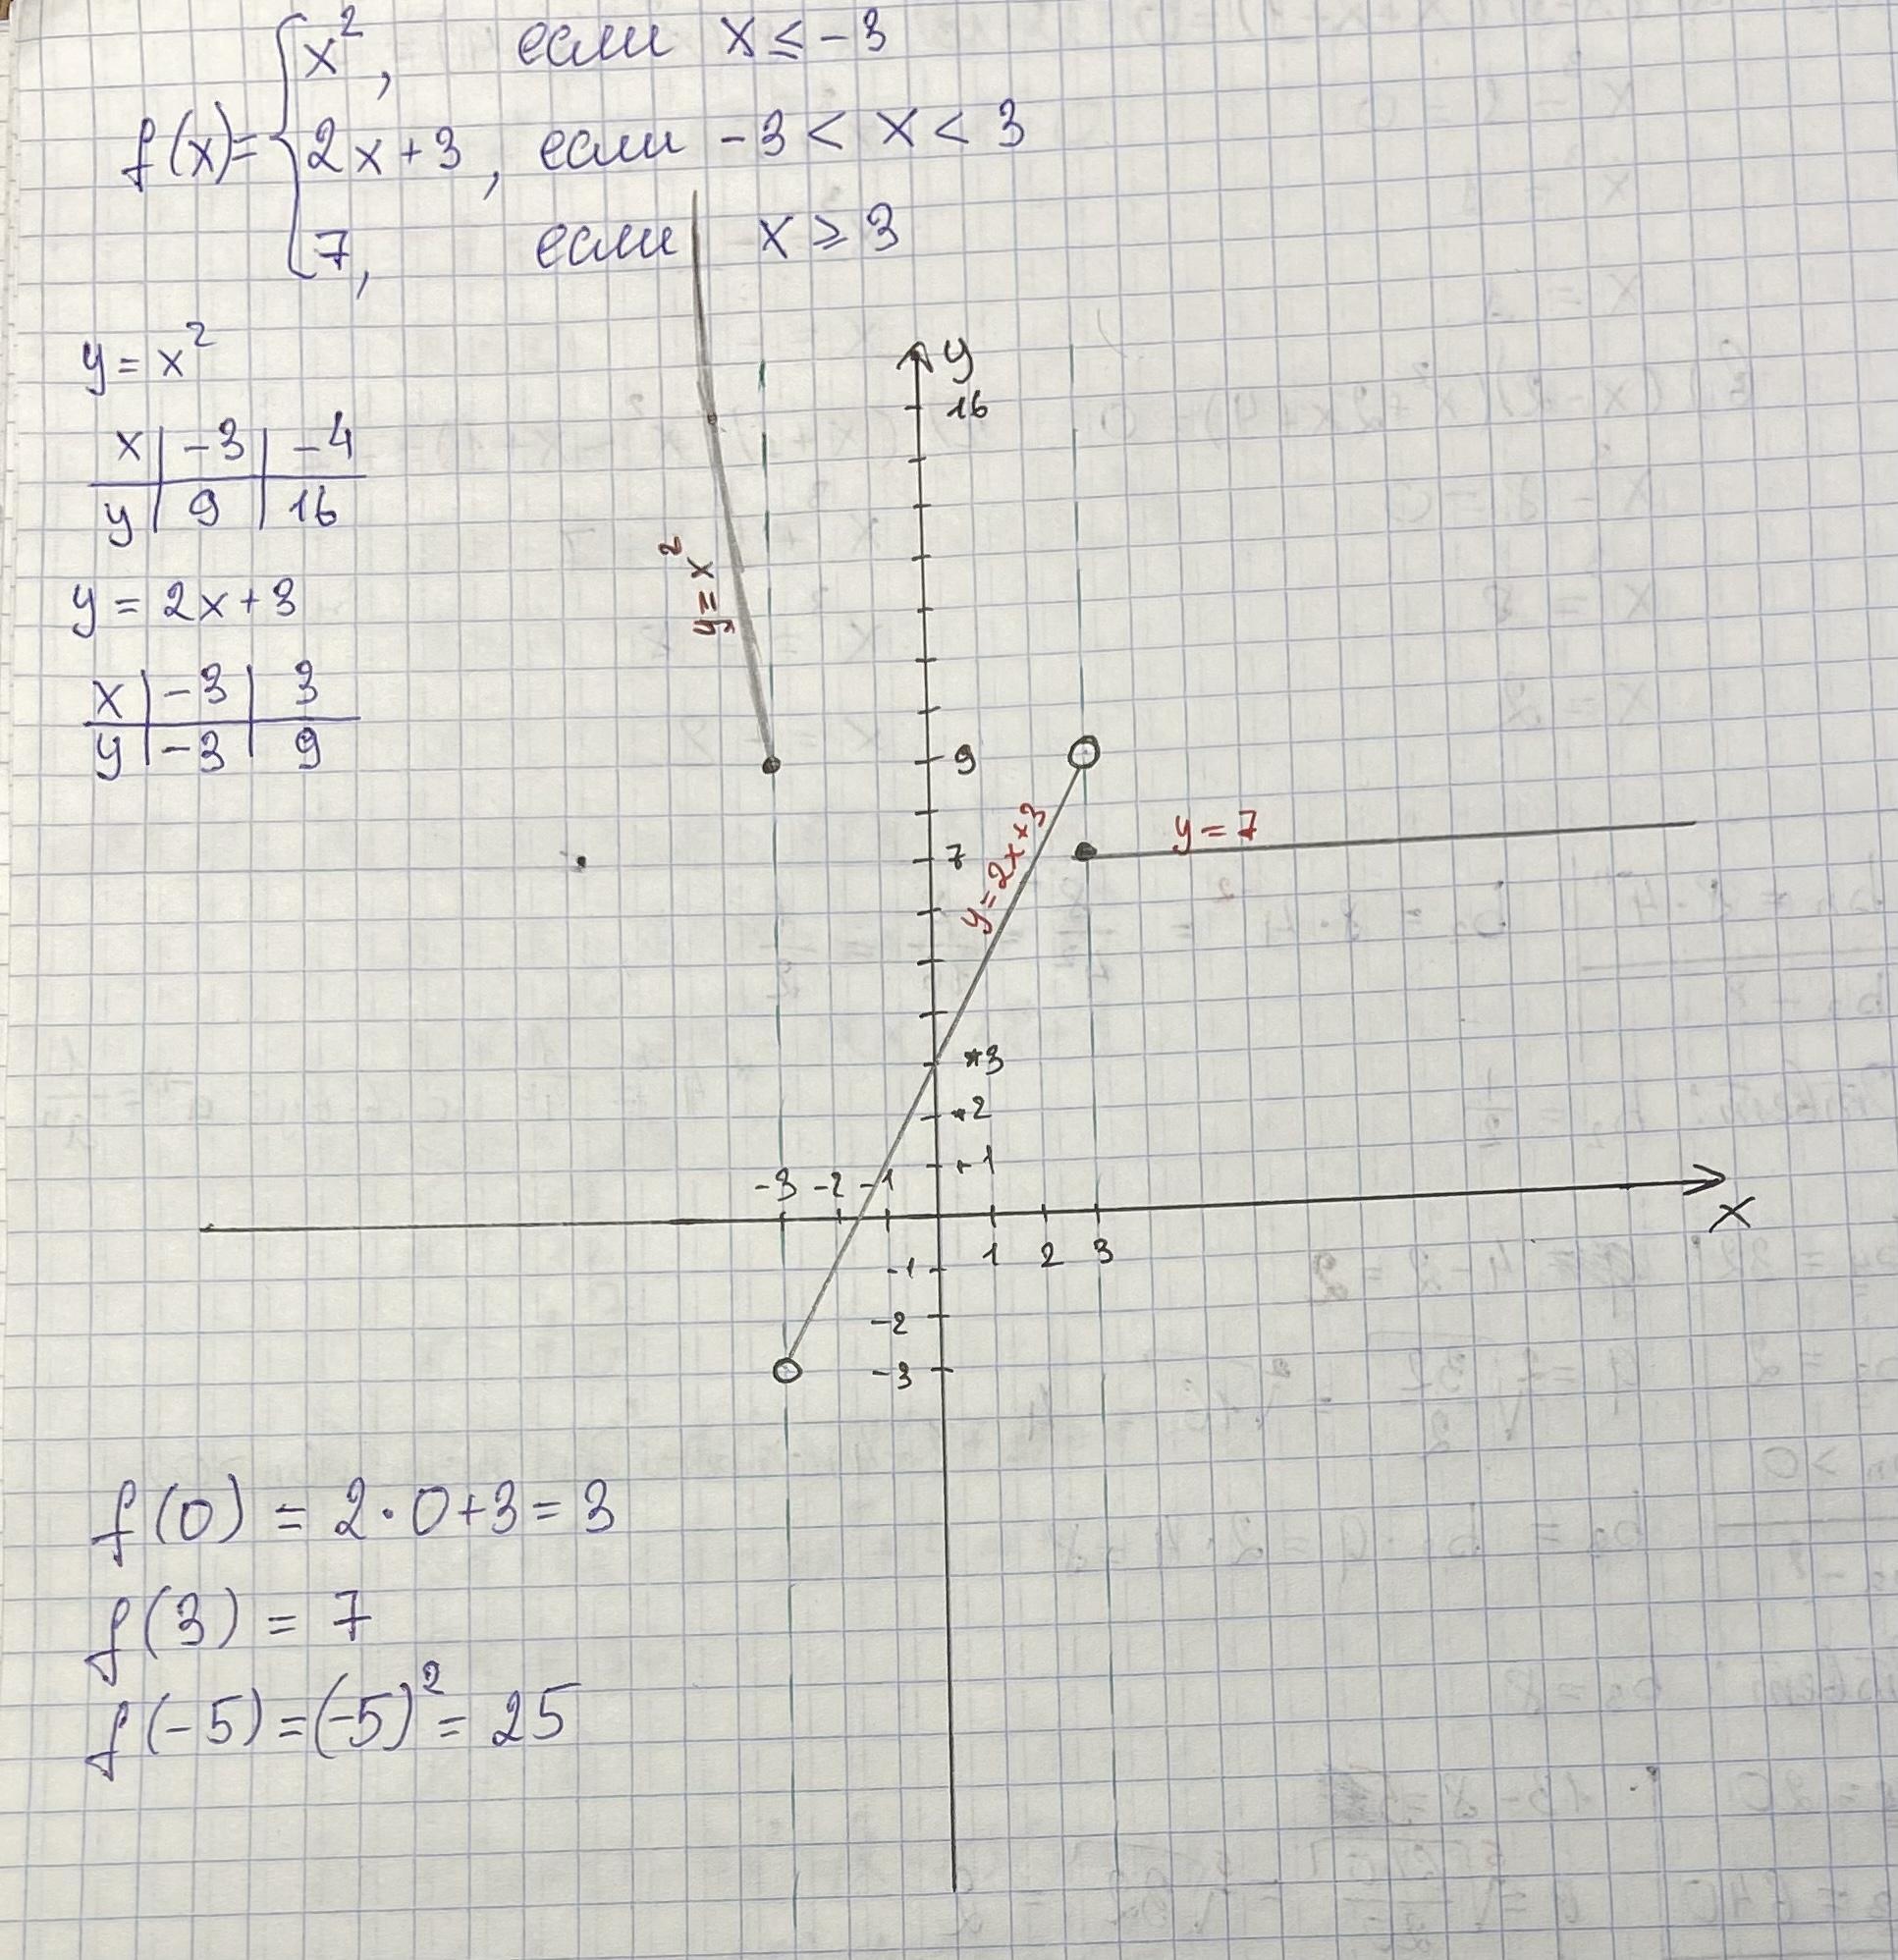 x², если x ≤ -3
f(x)= 2x+3, если -3 < x < 3
7, если x ≥ 3
y = x²
x | -3 | -4
y | 9 | 16
y = 2x+3
x | -3 | 3
y | -3 | 9
y
16
y = x²
9
y = 2x+3
7
y = 7
3
2
1
-3 -2 -1
x
1 2 3
-1
-2
-3
f(0) = 2·0+3 = 3
f(3) = 7
f(-5) = (-5)² = 25